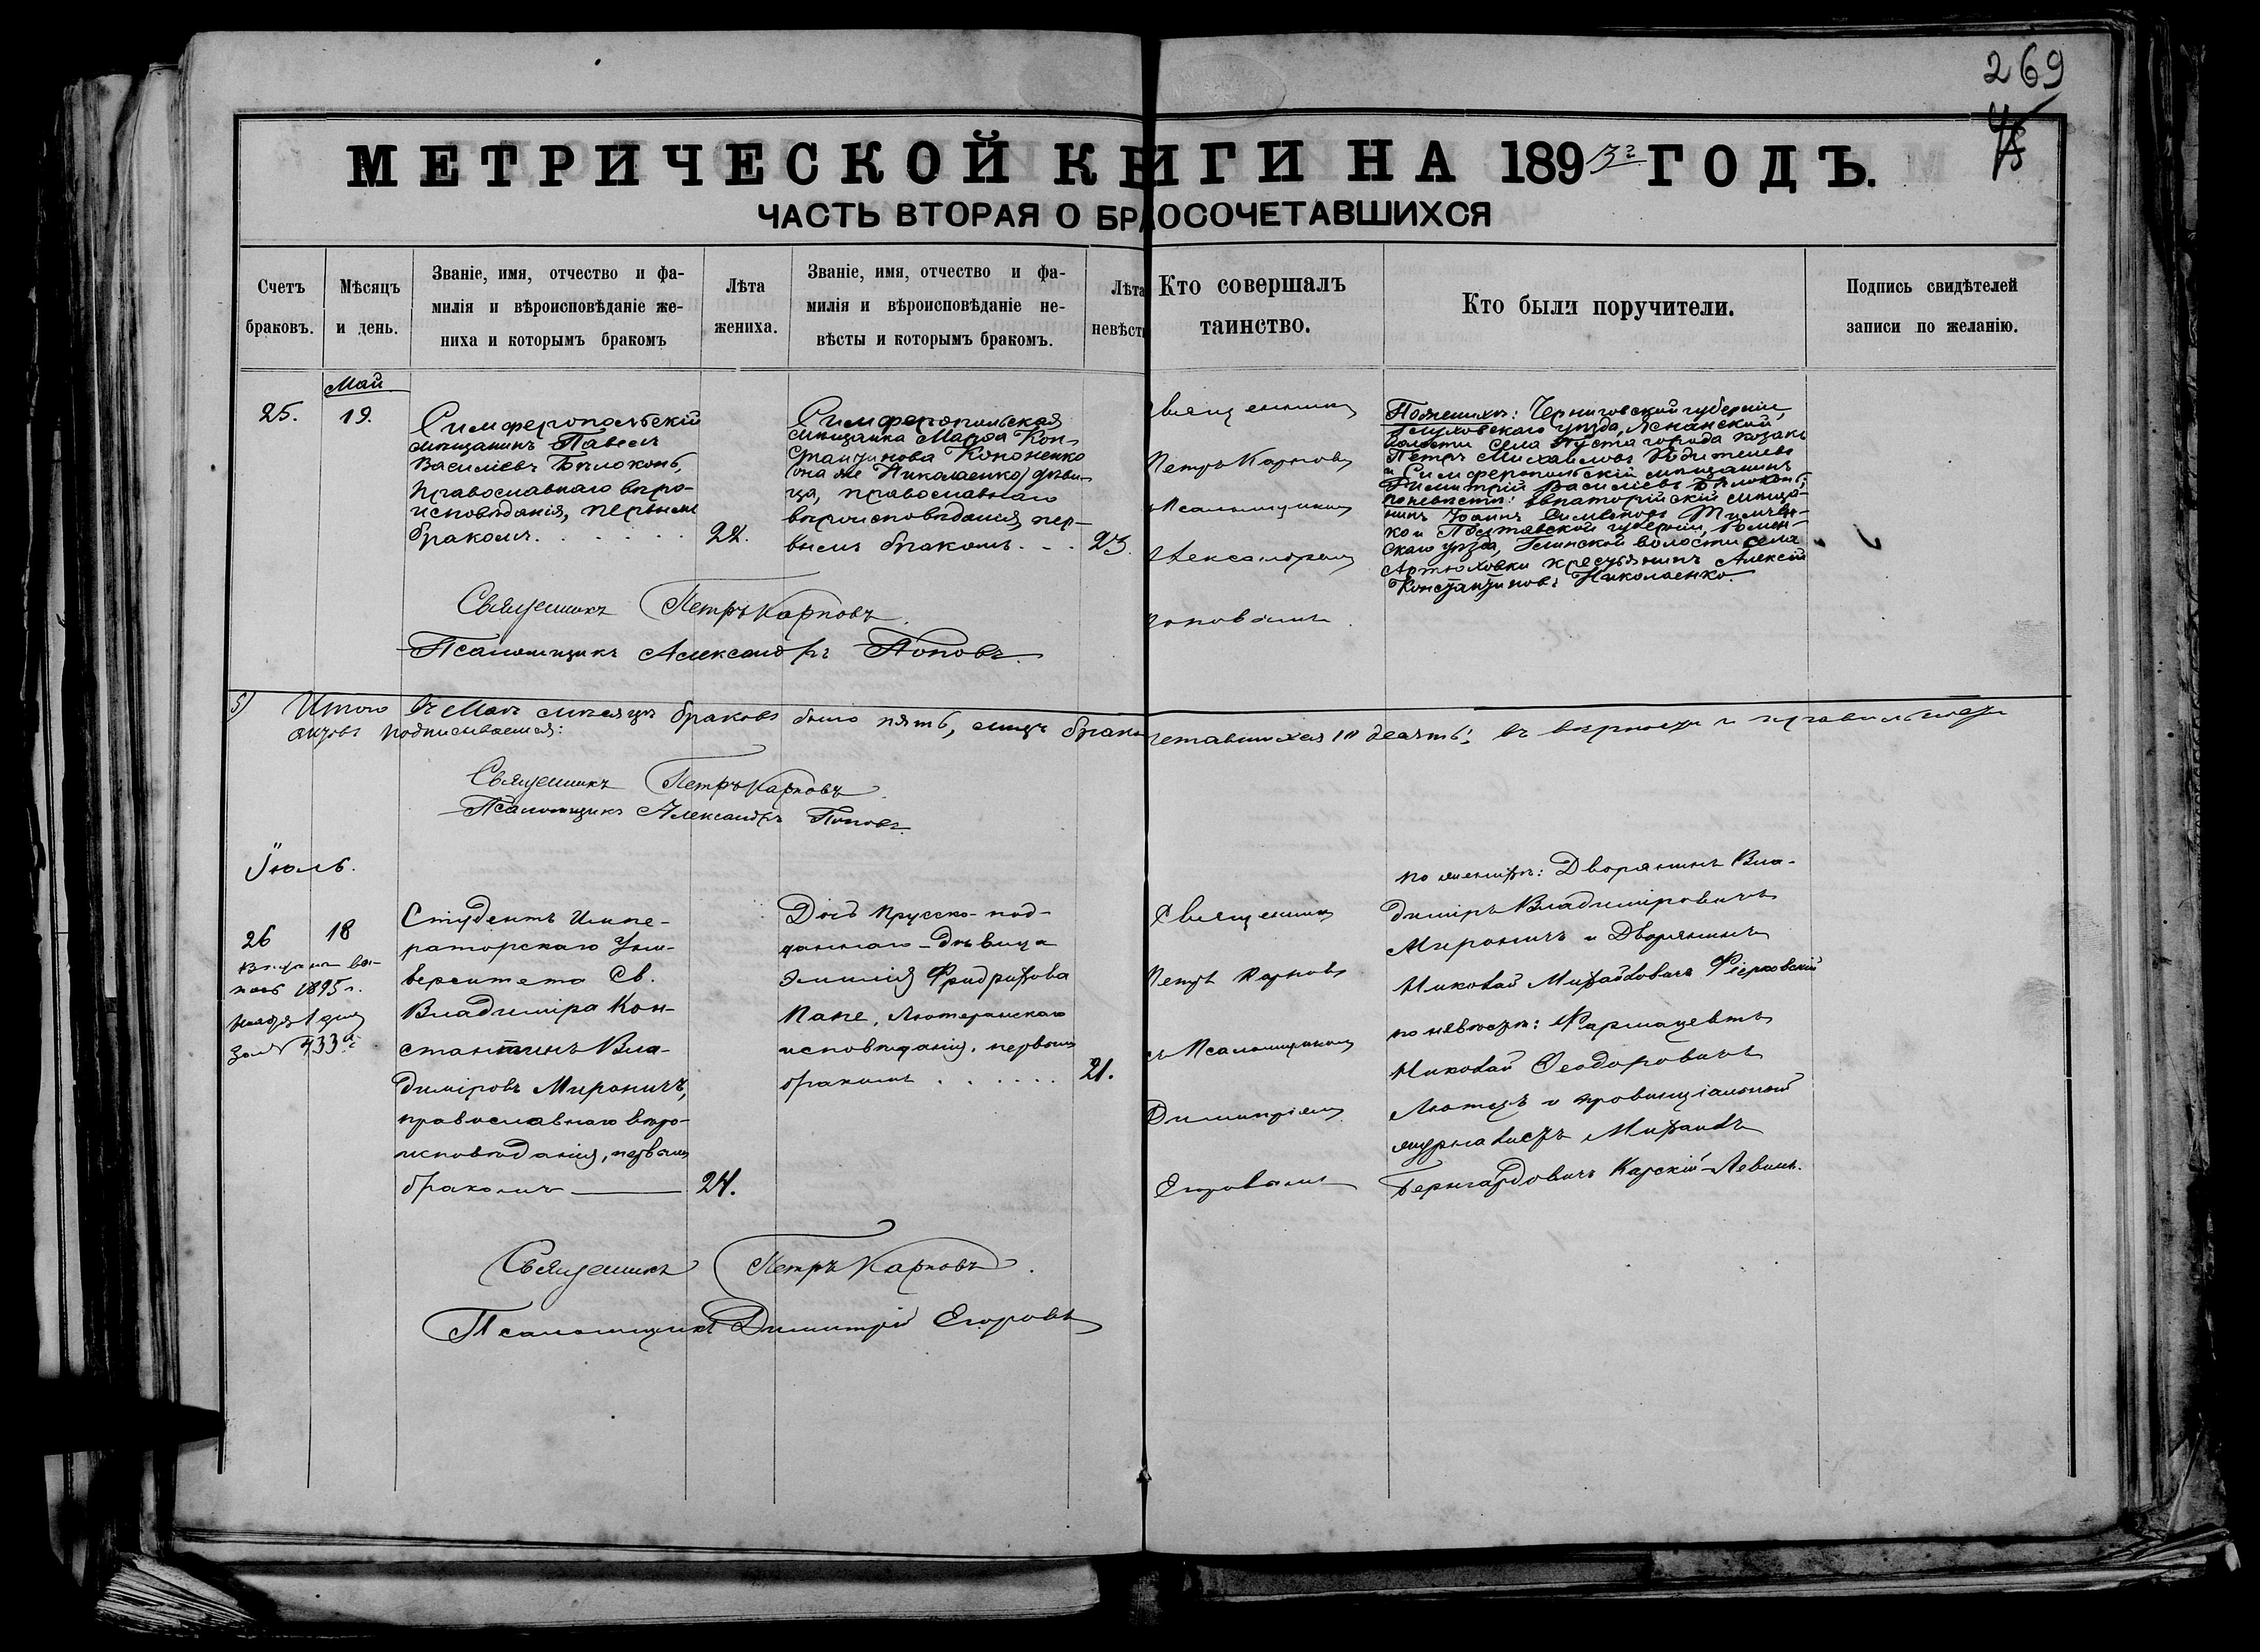 269
МЕТРИЧЕСКОЙ КНИГИ НА 1893 г. ГОДЪ.
ЧАСТЬ ВТОРАЯ О БРАОСОЧЕТАВШИХСЯ
Счетъ браковъ.
Мѣсяцъ и день.
Званіе, имя, отчество и фа-
милія и вѣроисповѣданіе же-
ниха и которымъ бракомъ
Лѣта жениха.
Званіе, имя, отчество и фа-
милія и вѣроисповѣданіе не-
вѣсты и которымъ бракомъ.
Лѣта невѣст
Кто совершалъ
таинство.
Кто были поручители.
Подпись свидѣтелей
записи по желанію.
Май
25.
19.
Симферопольскій
мѣщанинъ Павелъ
Василіевъ Бѣлоконь,
православнаго вѣро-
исповѣданія, первымъ
бракомъ. . . . . . .
22.
Симферопольская
мѣщанка Марѳа Кон-
стантинова Кононенко
(она же Николаенко) дѣви-
ца, православнаго
вѣроисповѣданія, пер-
вымъ бракомъ. . .
23.
вященникъ
Петръ Карповъ
Псаломщикомъ
Александромъ
Поповымъ.
По женихѣ: Черниговской губерніи,
Глуховскаго уѣзда, Яснанской
волости села Пустагорода козакъ
Петръ Михайловъ
и Симферопольскій мѣщанинъ
Димитрій Василіевъ Бѣлоконь;
по невѣстѣ: Евпаторійскій мѣща-
нинъ Іоаннъ
ко и Полтавской губерніи, Ромен-
скаго уѣзда, Глинской волости села
Артюховки крестьянинъ Алексій
Константиновъ Николаенко.
Священникъ Петръ Карповъ.
Псаломщикъ Александръ Поповъ.
5) Итого въ Маѣ мѣсяцѣ браковъ было пять, лицъ брако четавшихся десять; въ вѣрности и правильности
актовъ подписываемся:
Священникъ Петръ Карповъ.
Псаломщикъ Александръ Поповъ.
Іюль.
26
18
1895 г.
Студентъ Импе-
раторскаго Уни-
верситета Св.
Владиміра Кон-
стантинъ Вла-
диміровъ Мироничъ,
православнаго вѣро-
исповѣданія, первымъ
бракомъ
24.
Дочь Прусско-под-
даннаго - дѣвица
Эмилія Фридрихова
Папе, Лютеранскаго
исповѣданія, первымъ
бракомъ . . . . . .
21.
Священникъ
Петръ Карповъ
съ Псаломщикомъ
Димитріемъ
Егоровымъ
по женихѣ: Дворянинъ Вла-
диміръ Владиміровичъ
Мироничъ и Дворянинъ
Николай Михайловичъ
по невѣстѣ: Фармацевтъ
Николай Ѳеодоровичъ
и провинціальный
журналистъ Михаилъ
Бернгардовичъ Карскій-Левинъ.
Священникъ Петръ Карповъ.
Псаломщикъ Димитрій Егоровъ